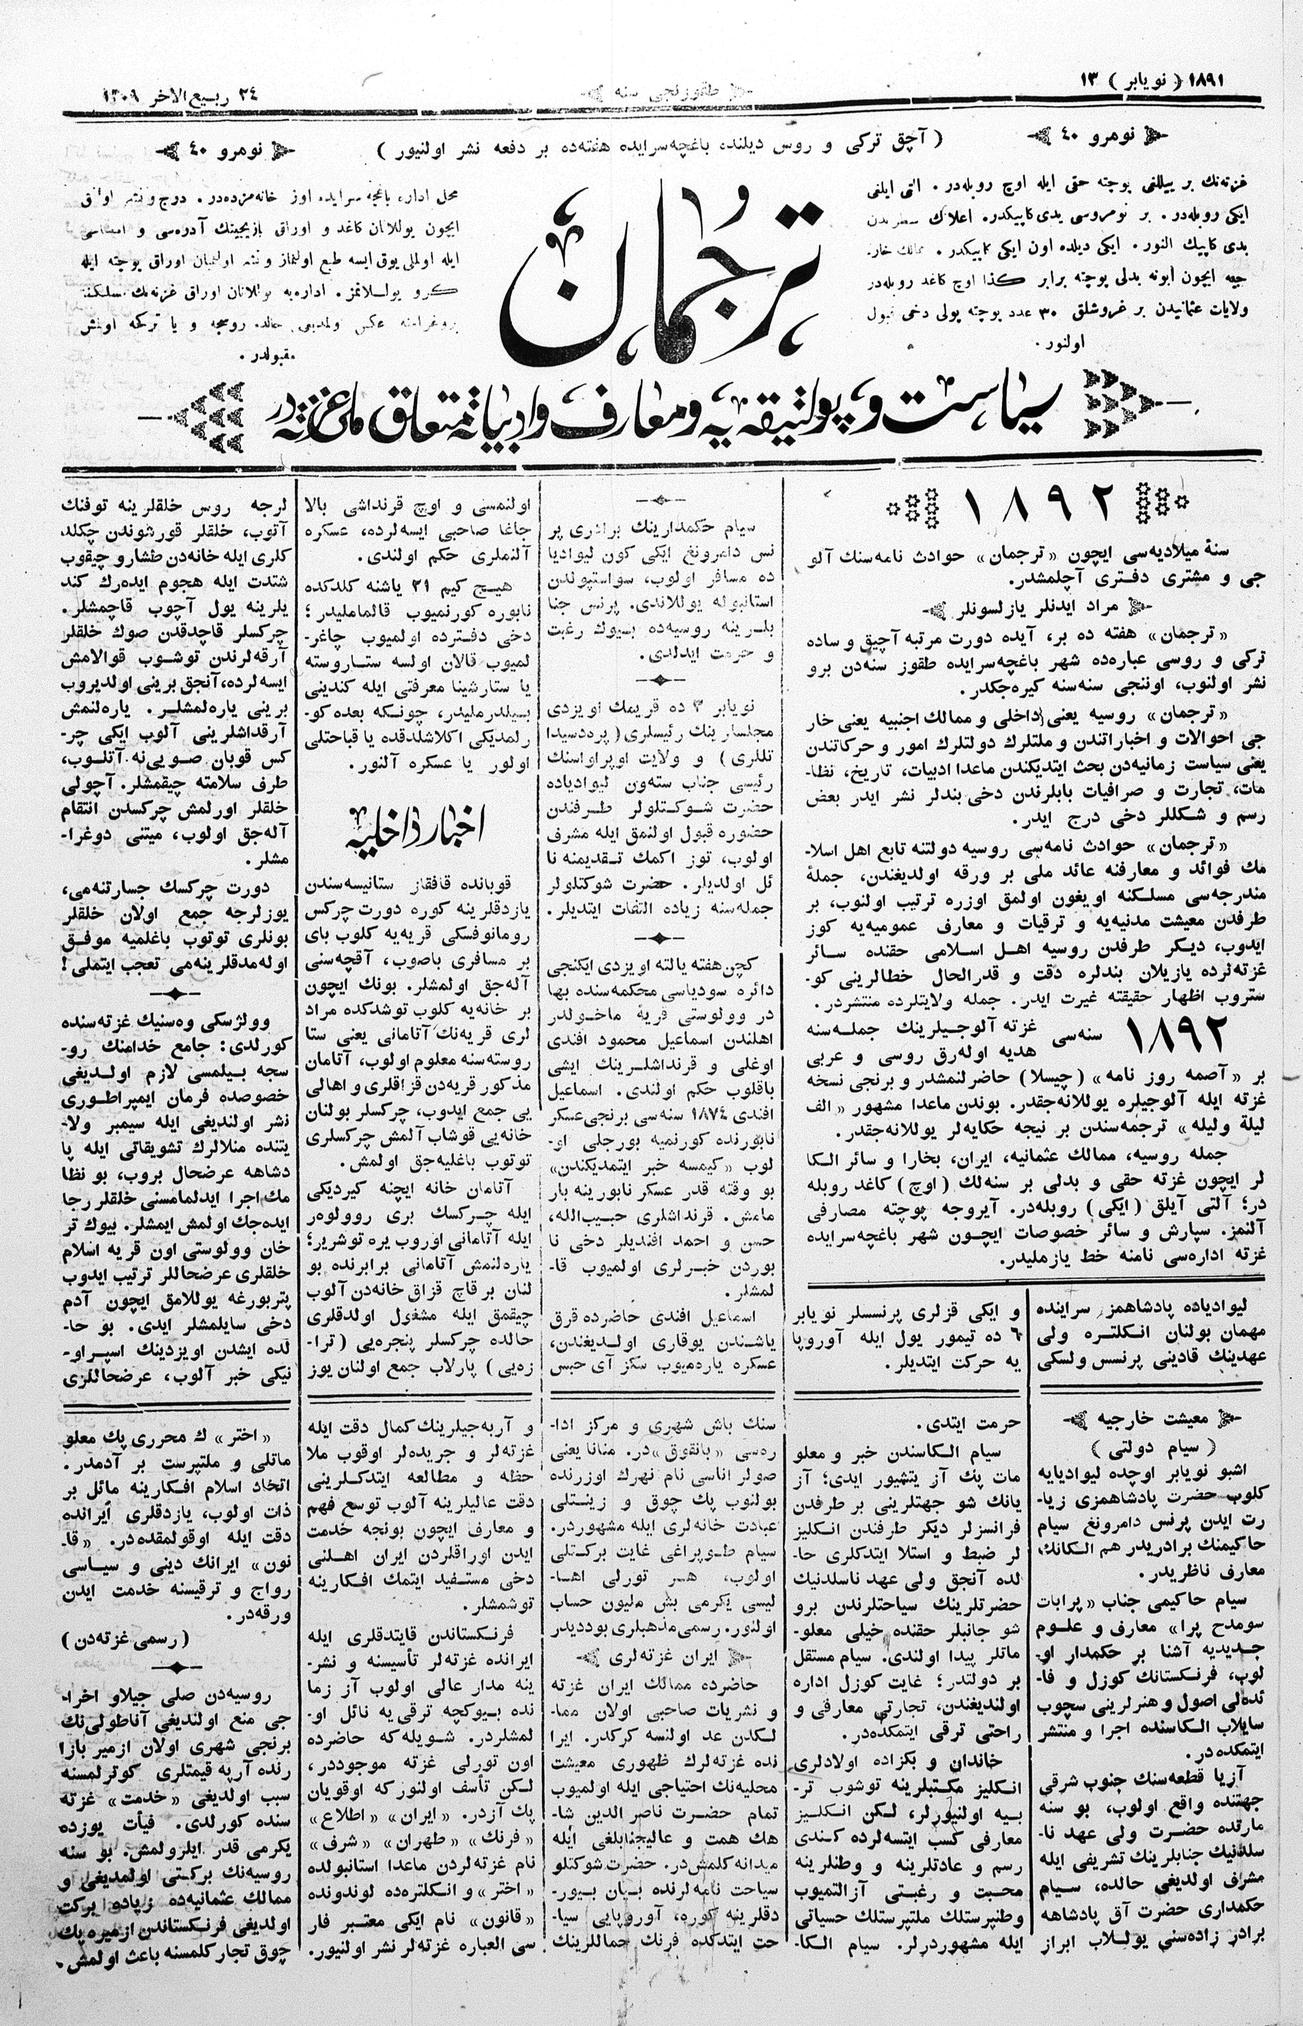 ١٨٩١ ( نویابر ) ١٣
طقوزنجی سنه
٢٤ ربیع الاخر ١٣٠٩
نومرو ٤٠
( آچق ترکی و روس دیلنده باغچه‌سرایده هفته‌ده بر دفعه نشر اولنیور )
نومرو ٤٠
غزته‌نك بر ییللغی پوچته حقی ایله اوچ روبله‌در. التی ایلغی
ایکی روبله‌در. بر نومروسی یدی کاپیکدر. اعلانك سطرندن
یدی کاپیك النور. ایکی دیلده اون ایکی کاپیکدر. ممالك خار-
جیه ایچون آبونه بدلی پوچته برابر کذا اوچ کاغد روبله‌در
ولایات عثمانیدن بر غروشلق ٣٠ عدد پوچته پولی دخی قبول
اولنور.
ترجمان
محل اداره باغچه سرایده اوز خانه‌مزده‌در. درج و نشر اولنق
ایچون یوللانان کاغد و اوراق یازیجینك آدره‌سی و امضاسی
ایله اولملی یوق ایسه طبع اولنماز و نشر اولنمیان اوراق پوچته ایله
کرو یوللانمز. اداره‌یه یوللانان اوراق غزته‌نك مسلکنه
پروغرامنه عکس اولمدیغی حالده روسجه و یا ترکجه اولنش
مقبولدر.
سیاست و پولتیقه‌یه و معارف و ادبیاته متعلق ملی غزته‌در
١٨٩٢
سنهٔ میلادیه‌سی ایچون «ترجمان» حوادث نامه‌سنك آلو
جی و مشتری دفتری آچلمشدر.
مراد ایدنلر یازلسونلر
«ترجمان» هفته ده بر، آیده دورت مرتبه آچیق و ساده
ترکی و روسی عباره‌ده شهر باغچه‌سرایده طقوز سنه‌دن برو
نشر اولنوب، اوننجی سنه‌سنه کیره‌جکدر.
«ترجمان» روسیه یعنی داخلی و ممالك اجنبیه یعنی خار
جی احوالات و اخباراتندن و ملتلرك دولتلرك امور و حرکاتندن
یعنی سیاست زمانیه‌دن بحث ایتدیکندن ماعدا ادبیات، تاریخ، نظا-
مات، تجارت و صرافیات بابلرندن دخی بندلر نشر ایدر بعض
رسم و شکللر دخی درج ایدر.
«ترجمان» حوادث نامه‌سی روسیه دولتنه تابع اهل اسلا-
مك فوائد و معارفنه عائد ملی بر ورقه اولدیغندن، جملهٔ
مندرجه‌سی مسلکنه اویغون اولمق اوزره ترتیب اولنوب، بر
طرفدن معیشت مدنیه‌یه و ترقیات و معارف عمومیه‌یه کوز
ایدوب، دیکر طرفدن روسیه اهل اسلامی حقنده سائر
غزته‌لرده یازیلان بندلره دقت و قدر الحال خطالرینی کو-
ستروب اظهار حقیقته غیرت ایدر. جمله ولایتلرده منتشردر.
١٨٩٢ سنه‌سی غزته آلوجیلرینك جمله‌سنه
هدیه اوله‌رق روسی و عربی
بر «آصمه روز نامه» (چیسلا) حاضرلنمشدر و برنجی نسخه
غزته ایله آلوجیلره یوللانه‌جقدر. بوندن ماعدا مشهور «الف
لیلة ولیله» ترجمه‌سندن بر نیجه حکایه‌لر یوللانه‌جقدر.
جمله روسیه، ممالك عثمانیه، ایران، بخارا و سائر الکا
لر ایچون غزته حقی و بدلی بر سنه‌لك (اوچ) کاغد روبله
در؛ آلتی آیلق (ایکی) روبله‌در. آیروجه پوچته مصارفی
آلنمز. سپارش و سائر خصوصات ایچون شهر باغچه‌سرایده
غزته اداره‌سی نامنه خط یازملیدر.
لیوادیاده پادشاهمز سراینده
مهمان بولنان انکلتره ولی
عهدینك قادینی پرنسس ولسکی
و ایکی قزلری پرنسسلر نویابر
٦ ده تیمور یول ایله آوروپا
یه حرکت ایتدیلر.
سیام حکمدارینك برادری پر
نس دامرونغ ایکی کون لیوادیا
ده مسافر اولوب، سواستپولدن
استانبوله یوللاندی. پرنس جنا
بلرینه روسیه‌ده بیوك رغبت
و حرمت ایدلدی.
نویابر ٣ ده قریمك اویزدی
مجلسلرینك رئیسلری (پره‌دسیدا
تللری) و ولایت اوپراواسنك
رئیسی جناب سته‌ون لیوادیاده
حضرت شوکتلولر طرفندن
حضوره قبول اولنمق ایله مشرف
اولوب، توز اکمك تقدیمنه نا
ئل اولدیلر. حضرت شوکتلولر
جمله‌سنه زیاده التفات ایتدیلر.
کچن هفته یالته اویزدی ایکنجی
دائره سودیاسی محکمه‌سنده بها
در وولوستی قریهٔ ماخولدر
اهلندن اسماعیل محمود افندی
اوغلی و قرنداشلرینك ایشی
باقلوب حکم اولندی. اسماعیل
افندی ١٨٧٤ سنه‌سی برنجی عسکر
نابورنده کورنمیه بورجلی او-
لوب «کیمسه خبر ایتمدیکندن»
بو وقته قدر عسکر نابورینه بار
مامش. قرنداشلری حبیب‌الله،
حسن و احمد افندیلر دخی نا
بوردن خبرلری اولمیوب قا-
لمشلر.
اسماعیل افندی حاضرده قرق
یاشندن یوقاری اولدیغندن،
عسکره یاره‌میوب سکز آی حبس
اولنمسی و اوچ قرنداشی بالا
جاغا صاحبی ایسه‌لرده، عسکره
آلنملری حکم اولندی.
هیچ کیم ٢١ یاشنه کلدکده
نابوره کورنمیوب قالماملیدر؛
دخی دفترده اولمیوب چاغر-
لمیوب قالان اولسه ستاروسته
یا ستارشینا معرفتی ایله کندینی
بیلدرملیدر، چونکه بعده کو-
رلمدیکی اکلاشلدقده یا قباحتلی
اولور یا عسکره آلنور.
اخبار داخلیه
قوبانده قافقاز ستانیسه‌سندن
یازدقلرینه کوره دورت چرکس
رومانوفسکی قریه‌یه کلوب بای
بر مسافری باصوب، آقچه‌سنی
آله‌جق اولمشلر. بونك ایچون
بر خانه‌یه کلوب توشدکده مراد
لری قریه‌نك آتامانی یعنی ستا
روسته سنه معلوم اولوب، آتامان
مذکور قریه‌دن قزاقلری و اهالی
یی جمع ایدوب، چرکسلر بولنان
خانه‌یی قوشاب آلمش چرکسلری
توتوب باغلیه‌جق اولمش.
آتامان خانه ایچنه کیردیکی
ایله چرکسك بری روولوه‌ر
ایله آتامانی اوروب یره توشریر؛
یاره‌لنمش آتامانی برابرنده بو
لنان بر قاچ قزاق خانه‌دن آلوب
چیقمق ایله مشغول اولدقلری
حالده چرکسلر پنجره‌یی (ترا-
زه‌یی) پارلاب جمع اولنان یوز
لرجه روس خلقلرینه توفنك
آتوب، خلقلر قورشوندن چکلد،
کلری ایله خانه‌دن طشارو چیقوب
شتدت ایله هجوم ایده‌رك کند
یلرینه یول آچوب قاچمشلر.
چرکسلر قاچدقدن صوك خلقلر
آرقه‌لرندن توشوب قوالامش
ایسه‌لرده، آنجق برینی اولدیروب
برینی یاره‌لمشلر. یاره‌لنمش
آرقداشلرینی آلوب ایکی چر-
کس قوبان صویی‌نه آتلوب،
طرف سلامته چیقمشلر. آچولی
خلقلر اورلمش چرکسدن انتقام
آله‌جق اولوب، میتنی دوغرا-
مشلر.
دورت چرکسك جسارتنه‌می،
یوزلرجه جمع اولان خلقلر
بونلری توتوب باغلمیه موفق
اوله‌مدقلرینه‌می تعجب ایتملی!
وولژسکی وه‌ستنیك غزته‌سنده
کورلدی: جامع خدامنك رو-
سجه بیلمسی لازم اولدیغی
خصوصده فرمان ایمپراطوری
نشر اولندیغی ایله سیمبر ولا-
یتنده منلالرك تشویقاتی ایله پا
دشاهه عرضحال بروب، بو نظا
مك اجرا ایدلمامسنی خلقلر رجا
ایده‌جك اولمش ایمشلر. بیوك تر
خان وولوستی اون قریه اسلام
خلقلری عرضحاللر ترتیب ایدوب
پتربورغه یوللامق ایچون آدم
دخی سایلمشلر ایدی. بو حا-
لده ایشدن اویزدینك اسپراو-
نیکی خبر آلوب، عرضحاللری
معیشت خارجیه
( سیام دولتی )
اشبو نویابر اوچده لیوادیایه
کلوب حضرت پادشاهمزی زیا-
رت ایدن پرنس دامرونغ سیام
حاکیمنك برادریدر هم الکانك،
معارف ناظریدر.
سیام حاکیمی جناب «پرابات
سومدح پرا» معارف و علوم
جدیدیه آشنا بر حکمدار او-
لوب، فرنکستانك کوزل و فا-
ئده‌لی اصول و هنرلرینی سچوب
سایلاب الکاسنده اجرا و منتشر
ایتمکده‌در.
آزیا قطعه‌سنك جنوب شرقی
جهتنده واقع اولوب، بو سنه
مارتده حضرت ولی عهد نا-
سلدنیك جنابلرینك تشریفی ایله
مشرف اولدیغی حالده، سیام
حکمداری حضرت آق پادشاهه
برادر زاده‌سنی یوللاب ابراز
حرمت ایتدی.
سیام الکاسندن خبر و معلو
مات پك آز یتشیور ایدی؛ آز
یانك شو جهتلرینی بر طرفدن
فرانسزلر دیکر طرفندن انکلیز
لر ضبط و استلا ایتدکلری حا-
لده آنجق ولی عهد ناسلدنیك
حضرتلرینك سیاحتلرندن برو
شو جانبلر حقنده خیلی معلو-
ماتلر پیدا اولندی. سیام مستقل
بر دولتدر؛ غایت کوزل اداره
اولندیغندن، تجارتی معارفی و
راحتی ترقی ایتمکده‌در.
خاندان و بکزاده اولادلری
انکلیز مکتبلرینه توشوب تر-
بیه اولنیورلر، لکن انکلیز
معارفی کسب ایتسه‌لرده کندی
رسم و عادتلرینه و وطنلرینه
محبت و رغبتی آزالتمیوب
وطنپرستلك ملتپرستلك حسیاتی
ایله مشهوردرلر. سیام الکا-
سنك باش شهری و مرکز ادا-
ره‌سی «بانقوق»در. منانا یعنی
صولر اناسی نام نهرك اوزرنده
بولنوب پك چوق و زینتلی
عبادت خانه‌لری ایله مشهوردر.
سیام طوپراغی غایت برکتلی
اولوب، هر تورلی اها-
لیسی یکرمی بش ملیون حساب
اولنور. رسمی مذهبلری بوددیدر
ایران غزته‌لری
حاضرده ممالك ایران غزته
و نشریات صاحبی اولان مما-
لکدن عد اولنسه کرکدر. ایرا
نده غزته‌لرك ظهوری معیشت
محلیه‌نك احتیاجی ایله اولمیوب
تمام حضرت ناصر الدین شا-
هك همت و عالیجنابلغی ایله
میدانه کلمش‌در. حضرت شوکتلو
سیاحت نامه‌لرنده بیان بیور-
دقلرینه کوره، آوروپایی سیا-
حت ایتدکده فرنك حماللرینك
و آربه‌جیلرینك کمال دقت ایله
غزته‌لر و جریده‌لر اوقوب ملا
حظه و مطالعه ایتدکلرینی
دقت عالیلرینه آلوب توسع فهم
و معارف ایچون بونجه خدمت
ایدن اوراقلردن ایران اهلنی
دخی مستفید ایتمك افکارینه
توشمشلر.
فرنکستاندن قایتدقلری ایله
ایرانده غزته‌لر تأسیسنه و نشر-
ینه مدار عالی اولوب آز زما
نده بیوکچه ترقی‌یه نائل او-
لمشلردر. شویله‌که حاضرده
اون تورلی غزته موجوددر،
لکن تأسف اولنورکه اوقویان
پك آزدر. «ایران» «اطلاع»
«فرنك» «طهران» «شرف»
نام غزته‌لردن ماعدا استانبولده
«اختر» و انکلتره‌ده لوندونده
«قانون» نام ایکی معتبر فار
سی العباره غزته‌لر نشر اولنیور.
«اختر» ك محرری پك معلو
ماتلی و ملتپرست بر آدمدر.
اتحاد اسلام افکارینه مائل بر
ذات اولوب، یازدقلری ایرانده
دقت ایله اوقولمقده‌در. «قا-
نون» ایرانك دینی و سیاسی
رواج و ترقیسنه خدمت ایدن
ورقه‌در.
(رسمی غزته‌دن)
روسیه‌دن صلی جیلاو اخرا-
جی منع اولندیغی آناطولی‌نك
برنجی شهری اولان ازمیر بازا
رنده آرپه قیمتلری کوترلمسنه
سبب اولدیغی «خدمت» غزته
سنده کورلدی. فیأت یوزده
یکرمی قدر ایلرولمش. بو سنه
روسیه‌نك برکتی اولمدیغی و
ممالك عثمانیه‌ده زیاده برکت
اولدیغی فرنکستاندن ازمیره پك
چوق تجار کلمسنه باعث اولمش.